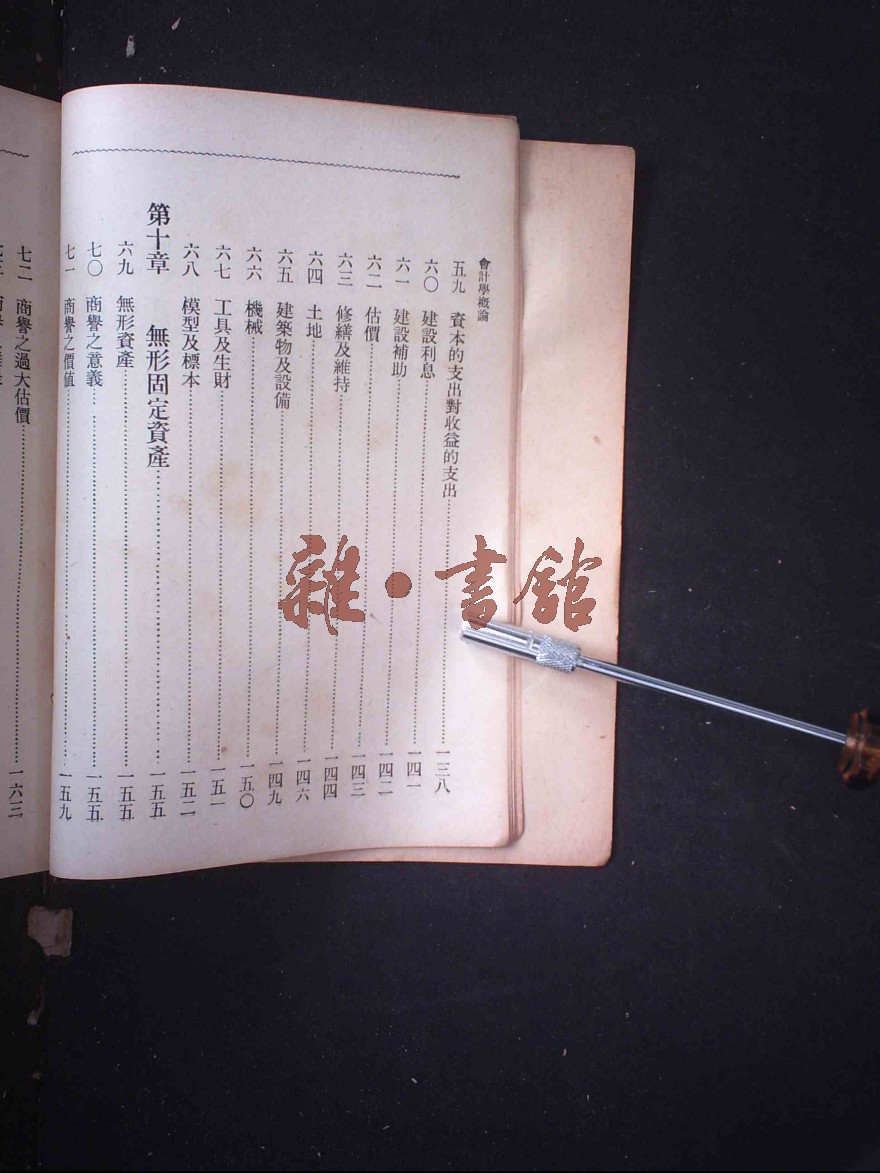 會計學概論
五九 資本的支出對收益的支出 一三八
六〇 建設利息 一四一
六一 建設補助 一四二
六二 估價 一四三
六三 修繕及維持 一四四
六四 土地 一四六
六五 建築物及設備 一四九
六六 機械 一五〇
六七 工具及生財 一五一
六八 模型及標本 一五二
第十章 無形固定資產 一五五
六九 無形資產 一五五
七〇 商譽之意義 一五五
七一 商譽之價值 一五九
七二 商譽之過大估價 一六三
雜·書館